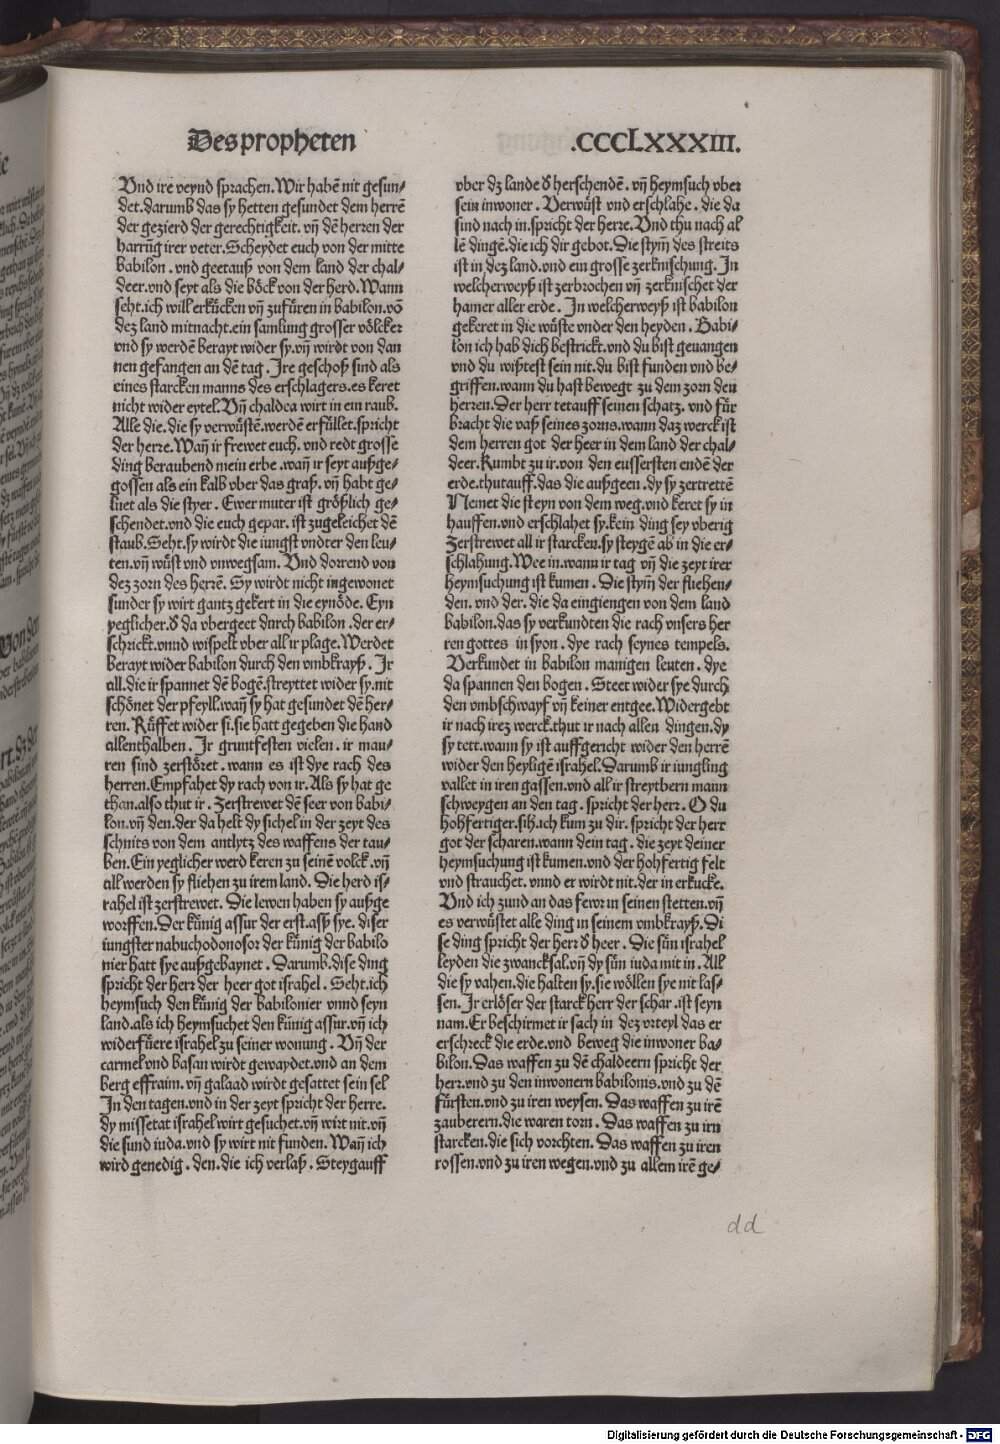 Des propheten
.CCCLXXXIII.
Vnd ire veynd sprachen. Wir habē nit gesun-
det. darumb das sy hetten gesundet dem herrē
der gezierd der gerechtigkeit. vn̄ dē herren der
harrūg irer veter. Scheydet euch von der mitte
babilon. vnd geet auß von dem land der chal-
deer. vnd seyt als die böck von der herd. Wann
seht. ich will erkücken vn̄ zufüren in babilon. vō
dez land mitnacht. ein samlung grosser völcker
vnd sy werdē berayt wider sy. vn̄ wirdt von dan
nen gefangen an dē tag. Ire geschoß sind als
eines starcken manns des erschlagers. es keret
nicht wider eytel. Vn̄ chaldea wirt in ein raub.
Alle die. die sy verwüstē. werdē erfüllet. spricht
der herre. Wan̄ ir frewet euch. vnd redt grosse
ding beraubend mein erbe. wan̄ ir seyt außge-
gossen als ein kalb vber das graß. vn̄ habt ge-
luet als die styer. Ewer muter ist größlich ge-
schendet. vnd die euch gepar. ist zugeleichet dē
staub. Seht. sy wirdt die iungst vndter den leu-
ten. vn̄ wüst vnd vnwegsam. Vnd dorrend von
dez zorn des herrē. Sy wirdt nicht ingewonet
sunder sy wirt gantz gekert in die eynöde. Eyn
yeglicher. d̄ da vbergeet durch babilon. der er-
schrickt. vnnd wispelt vber all ir plage. Werdet
berayt wider babilon durch den vmbkrayß. Ir
all. die ir spannet dē bogē. streyttet wider sy. nit
schönet der pfeyll. wan̄ sy hat gesundet dē her-
ren. Rüffet wider si. sie hatt gegeben die hand
allenthalben. Ir gruntfesten vielen. ir mau-
ren sind zerstöret. wann es ist dye rach des
herren. Empfahet dy rach von ir. Als sy hat ge
than. also thut ir. Zerstrewet dē seer von babi-
lon. vn̄ den. der da helt dy sichel in der zeyt des
schnits von dem antlytz des waffens der tau-
ben. Ein yeglicher werd keren zu seinē volck. vn̄
all werden sy fliehen zu irem land. Die herd is-
rahel ist zerstrewet. Die lewen haben sy außge
worffen. Der künig assur der erst. aß sye. diser
iungster nabuchodonosor der künig der babilo
nier hatt sye außgebaynet. Darumb. dise ding
spricht der herr der heer got israhel. Seht. ich
heymsuch den künig der babilonier vnnd seyn
land. als ich heymsuchet den künig assur. vn̄ ich
widerfüere israhel zu seiner wonung. Vn̄ der
carmel vnd basan wirdt gewaydet. vnd an dem
berg effraim. vn̄ galaad wirdt gesattet sein sel
In den tagen. vnd in der zeyt spricht der herre.
dy missetat israhel wirt gesuchet. vn̄ wirt nit. vn̄
die sund iuda. vnd sy wirt nit funden. Wan̄ ich
wird genedig. den. die ich verlaß. Steyg auff
vber dz lande d̄ herschendē. vn̄ heymsuch vber
sein inwoner. Verwüst vnd erschlahe. die da
sind nach in. spricht der herre. Vnd thu nach al
lē dingē. die ich dir gebot. Die stym̄ des streits
ist in dez land. vnd ein grosse zerknischung. In
welcherweyß ist zerbrochen vn̄ zerknischet der
hamer aller erde. In welcherweyß ist babilon
gekeret in die wüste vnder den heyden. Babi-
lon ich hab dich bestrickt. vnd du bist geuangen
vnd du wißtest sein nit. du bist funden vnd be-
griffen. wann du hast bewegt zu dem zorn den
herren. Der herr tet auff seinen schatz. vnd für
bracht die vaß seines zorns. wann daz werck ist
dem herren got der heer in dem land der chal-
deer. Kumbt zu ir. von den eussersten endē der
erde. thut auff. das die außgeen. dy sy zertrettē
Nemet die steyn von dem weg. vnd keret sy in
hauffen. vnd erschlahet sy. kein ding sey vberig
Zerstrewet all ir starcken. sy steygē ab in die er-
schlahung. Wee in. wann ir tag vn̄ die zeyt irer
heymsuchung ist kumen. Die stym̄ der fliehen-
den. vnd der. die da eingiengen von dem land
babilon. das sy verkundten die rach vnsers her
ren gottes in syon. dye rach seynes tempels.
Verkundet in babilon manigen leuten. dye
da spannen den bogen. Steet wider sye durch
den vmbschwayf vn̄ keiner entgee. Widergebt
ir nach irez werck. thut ir nach allen dingen. dy
sy tett. wann sy ist auffgericht wider den herrē
wider den heyligē israhel. Darumb ir iungling
vallet in iren gassen. vnd all ir streytbern mann
schweygen an den tag. spricht der herr. O du
hohfertiger. sih. ich kum zu dir. spricht der herr
got der scharen. wann dein tag. die zeyt deiner
heymsuchung ist kumen. vnd der hohfertig felt
vnd strauchet. vnnd er wirdt nit. der in erkucke.
Vnd ich zund an das fewr in seinen stetten. vn̄
es verwüstet alle ding in seinem vmbkrayß. Di
se ding spricht der herr d̄ heer. Die sün israhel
leyden die zwancksal. vn̄ dy sün iuda mit in. All
die sy vahen. die halten sy. sie wöllen sye nit las-
sen. Ir erlöser der starck herr der schar. ist seyn
nam. Er beschirmet ir sach in dez vrteyl das er
erschreck die erde. vnd beweg die inwoner ba-
bilon. Das waffen zu dē chaldeern spricht der
herr. vnd zu den inwonern babilonis. vnd zu dē
fürsten. vnd zu iren weysen. Das waffen zu irē
zauberern. die waren torn. Das waffen zu irn
starcken. die sich vorchten. Das waffen zu iren
rossen. vnd zu iren wegen. vnd zu allem irē ge-
dd
Digitalisierung gefördert durch die Deutsche Forschungsgemeinschaft - DFG